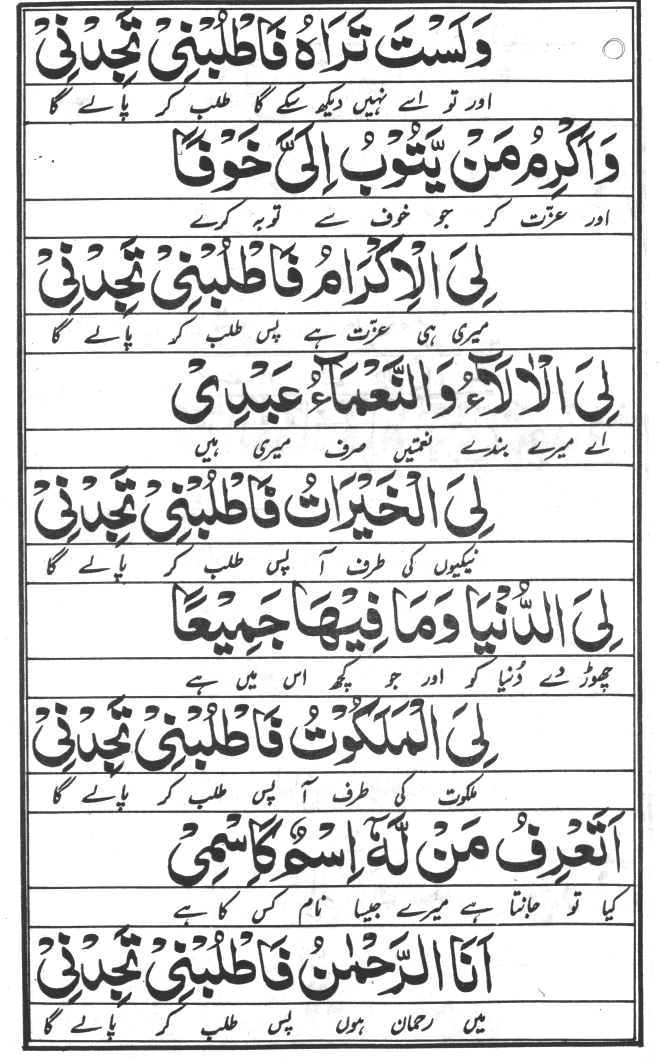 وَلَسْتَ تَرَاهُ فَاطْلُبْنِیْ تَجِدْنِیْ
اور تو اسے نہیں دیکھ سکے گا طلب کر پالے گا
وَاَكْرِمُ مَنْ يَّتُوْبُ اِلَىَّ خَوْفًا
اور عزّت کر جو خوف سے توبہ کرے
لِىَ الْاِكْرَامُ فَاطْلُبْنِیْ تَجِدْنِیْ
میری ہی عزّت ہے پس طلب کر پالے گا
لِىَ الْاٰلَآءُ وَالنَّعْمَآءُ عَبْدِیْ
اے میرے بندے نعمتیں صرف میری ہیں
لِىَ الْخَيْرَاتُ فَاطْلُبْنِیْ تَجِدْنِیْ
نیکیوں کی طرف آ پس طلب کر پالے گا
لِىَ الدُّنْيَا وَمَا فِيْهَا جَمِيْعًا
چھوڑ دے دُنیا کو اور جو کچھ اس میں ہے
لِىَ الْمَلَكُوْتُ فَاطْلُبْنِیْ تَجِدْنِیْ
ملکوت کی طرف آ پس طلب کر پالے گا
اَتَعْرِفُ مَنْ لَّهٗٓ اِسْمٌ كَاِسْمِیْ
کیا تو جانتا ہے میرے جیسا نام کس کا ہے
اَنَا الرَّحْمٰنُ فَاطْلُبْنِیْ تَجِدْنِیْ
میں رحمان ہوں پس طلب کر پالے گا